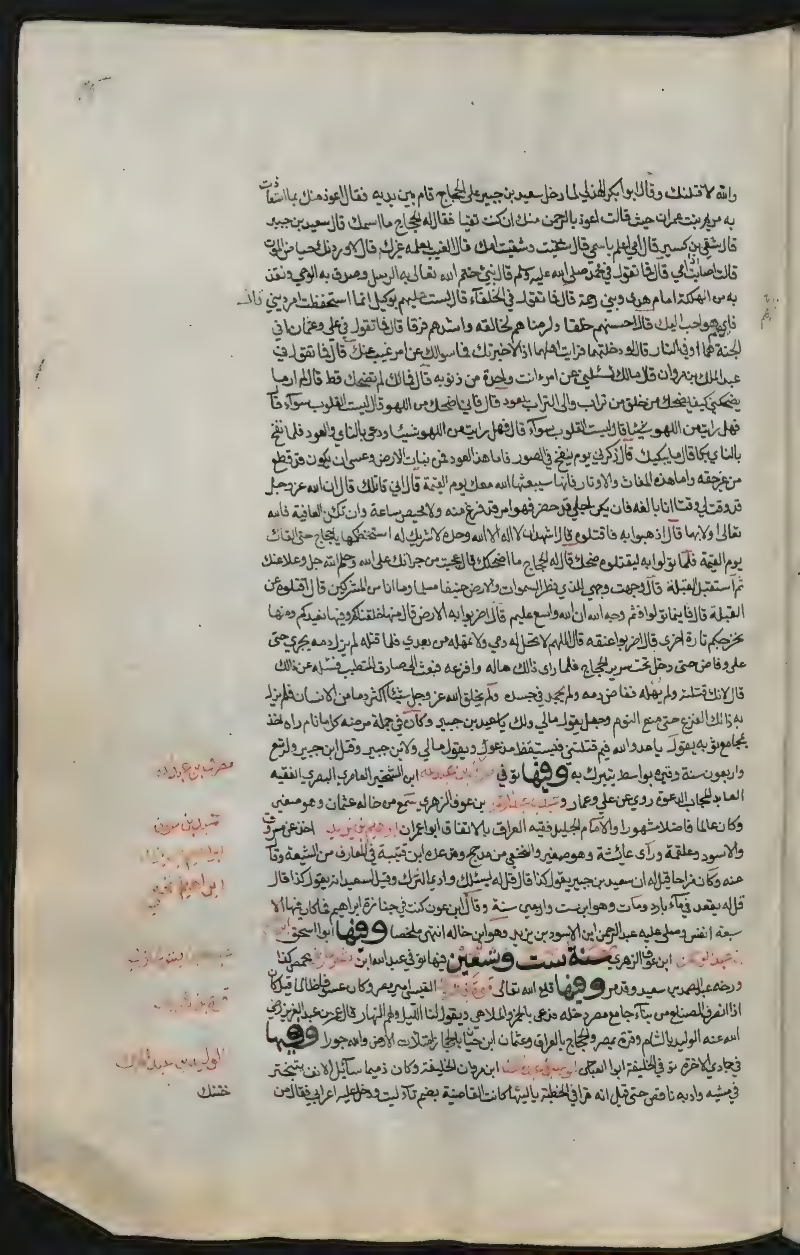 والله لاقتلنك وقال ابو بكر الهذلي لما دخل سعيد بن جبير على الحجاج قام بين يديه فقال اعوذ منك بما استعاذت
به مريم بنت عمران حيث قالت اعوذ بالرحمن منك ان كنت تقيا فقال له الحجاج ما اسمك قال سعيد بن جبير
قال شقي بن كسير قال امي اعلم باسمي قال شقيت وشقيت امك قال الغيب يعلمه غيرك قال لاوردنك حياض الموت
قال اصابت امي قال فما تقول في محمد صلى الله عليه وسلم قال نبي ختم الله تعالى به الرسل وصدق به الوحي وانقذ
به من الهلكة امام هدى ونبي رحمة قال فما تقول في الخلفاء قال لست عليهم بوكيل انما استحفظت امر ديني قال
فايهم احب اليك قال احسنهم خلقا وارضاهم لخالقه واشدهم فرقا قال فما تقول في علي وعثمان افي
الجنة هما او في النار قال لو دخلتها فرايت اهلها اذا لاخبرتك فما سوالك عن امر غيب عنك قال فما تقول في
عبد الملك بن مروان قال مالك تسئلني عن امرء انت واحدة من ذنوبه قال فمالك لم تضحك قط قال لم ار ما
يضحكني كيف يضحك من خلق من تراب والى التراب يعود قال فاني اضحك من اللهو قال ليست القلوب سواء قال
فهل رايت من اللهو شيئا قال ليست القلوب سواء قال فهل رايت من اللهو شيئا ودعى بالناي والعود فلما نفخ
بالناي بكا قال ما يبكيك قال ذكرني يوم ينفخ في الصور فاما هذا العود فمن نبات الارض وعسى ان يكون قد قطع
من غير حقه واما هذه المغاث والاوتار فانها سيبعثها الله معك يوم القيمة قال اني قاتلك قال ان الله عز وجل
قد وقت لي وقتا انا بالغه فان يكن اجلي قد حضر فهو امر قد فرغ منه ولا محيص ساعة وان تكن العافية فالله
تعالى اولى بها قال اذهبوا به فاقتلوه قال اشهد ان لا اله الا الله وحده لا شريك له استحفظكها يا حجاج حتى القاك
يوم القيمة فلما تولوا به ليقتلوه ضحك قال له الحجاج ما اضحكك قال عجبت من جرائتك على الله وحلم الله جل وعلا عنك
ثم استقبل القبلة قال وجهت وجهي للذي فطر السموات والارض حنيفا مسلما وما انا من المشركين قال اقتلوه عن
القبلة قال فاينما تولوا فثم وجه الله ان الله واسع عليم قال اضربوا به الارض قال منها خلقناكم وفيها نعيدكم ومنها
نخرجكم تارة اخرى قال اضربوا عنقه قال اللهم لا تحل له دمي ولا تمهله من بعدي فلما قتله لم يزل دمه يجري حتى
علا وفاض حتى دخل تحت سرير الحجاج فلما راى ذلك هاله وافزعه فبعث الى صادق المتطبب فسئله عن ذلك
قال لانك قتلته ولم يهله ففاض دمه ولم يجمد في جسده ولم يخلق الله عز وجل شيئا اكثر دما من الانسان فلم يزل
به ذلك الفزع حتى منع النوم وجعل يقول مالي ولك يا سعيد بن جبير وكان في جملة مرضه كلما نام راه اخذ
بمجامع ثوبه يقول يا عدو الله فيم قتلتني فيستيقظ مذعورا ويقول مالي ولابن جبير وقتل ابن جبير وله تسع
واربعون سنة وقبره بواسط يتبرك به وفيها توفي مطرف بن عبد الله ابن الشخير العامري البصري الفقيه
العابد المجاب الدعوة روي عن علي وعمار وحميد بن عبد الرحمن بن عوف الزهري سمع من خاله عثمان وهو صغير
وكان عالما فاضلا مشهورا والامام الجليل فقيه العراق بالاتفاق ابو عمران ابراهيم بن يزيد اخذ عن مسروق
والاسود وعلقمة وراى عائشة وهو صغير والنخعي من مذحج وعده ابن قتيبة في المعارف من الشيعة وقال
عنه وكان مزاحا قيل له ان سعيد بن جبير يقول كذا قال قل له يسلك وادي النزك وقيل لسعيد انه يقول كذا قال
قل له يقعد في ماء بارد ومات وهو ابن ست واربعين سنة وقال ابن عون كنت في جنازة ابراهيم فما كان فيها الا
سبعة انفس وصلى عليه عبد الرحمن ابن الاسود بن يزيد وهو ابن خاله انتهى ملخصا وفيها ابو اسحق
ابن عوف الزهري سنة ست وتسعين فيها توفي عبد الله ابن
وفيها قتله الله تعالى قرة بن شريك القيسي امير مصر وكان عسوفا ظالما قيل كان
اذا انصرف الصناع من بناء جامع مصر دخله فدعى بالخمر والملاهي ويقول لنا الليل ولهم النهار قال عمر بن عبد العزيز رضي
الله عنه الوليد بالشام وقرة بمصر والحجاج بالعراق وعثمان ابن حيان بالحجاز امتلات الارض والله جورا وفيها
في جمادي الاخرة توفي الخليفة ابو العباس ابن مروان الخليفة وكان دميما سائل الانف يتبختر
في مشيه وادبه ناقص حتى قيل انه قرا في الخطبة يا ليتها كانت القاضية بضم تاء ليت ودخل عليه اعرابي فقال من
ختنك
مطرف بن عبد الله
ابراهيم النخعي
قرة بن شريك
الوليد بن عبد الملك